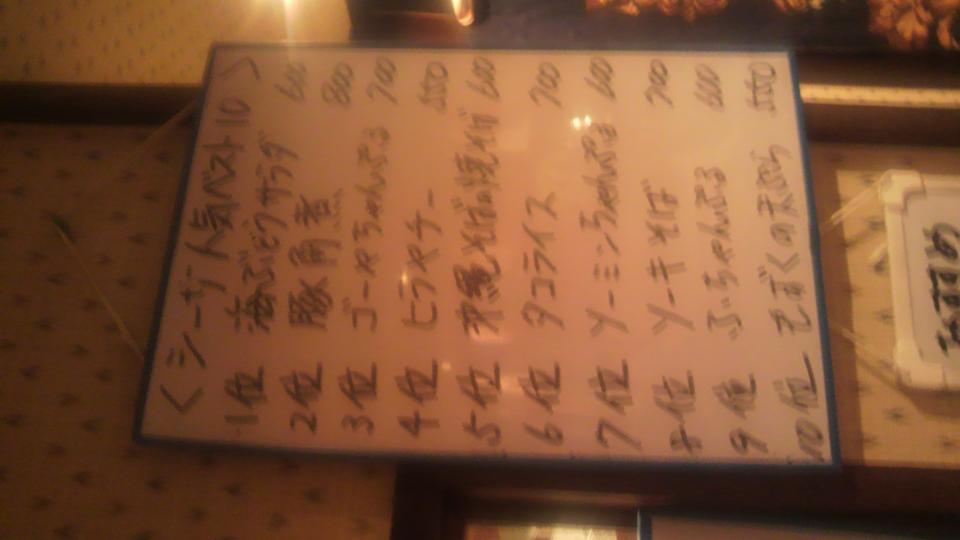 <シーサー人気ベスト10>
1位 海ぶどうサラダ 600
2位 豚角煮 800
3位 ゴーやちゃんぷる 700
4位 ヒラやチー 550
5位 沖縄そばの焼そば 600
6位 タコライス 700
7位 ソーミンちゃんぷる 600
8位 ソーキそば 700
9位 ふちゃんぷる 600
10位 もずくの天ぷら 550